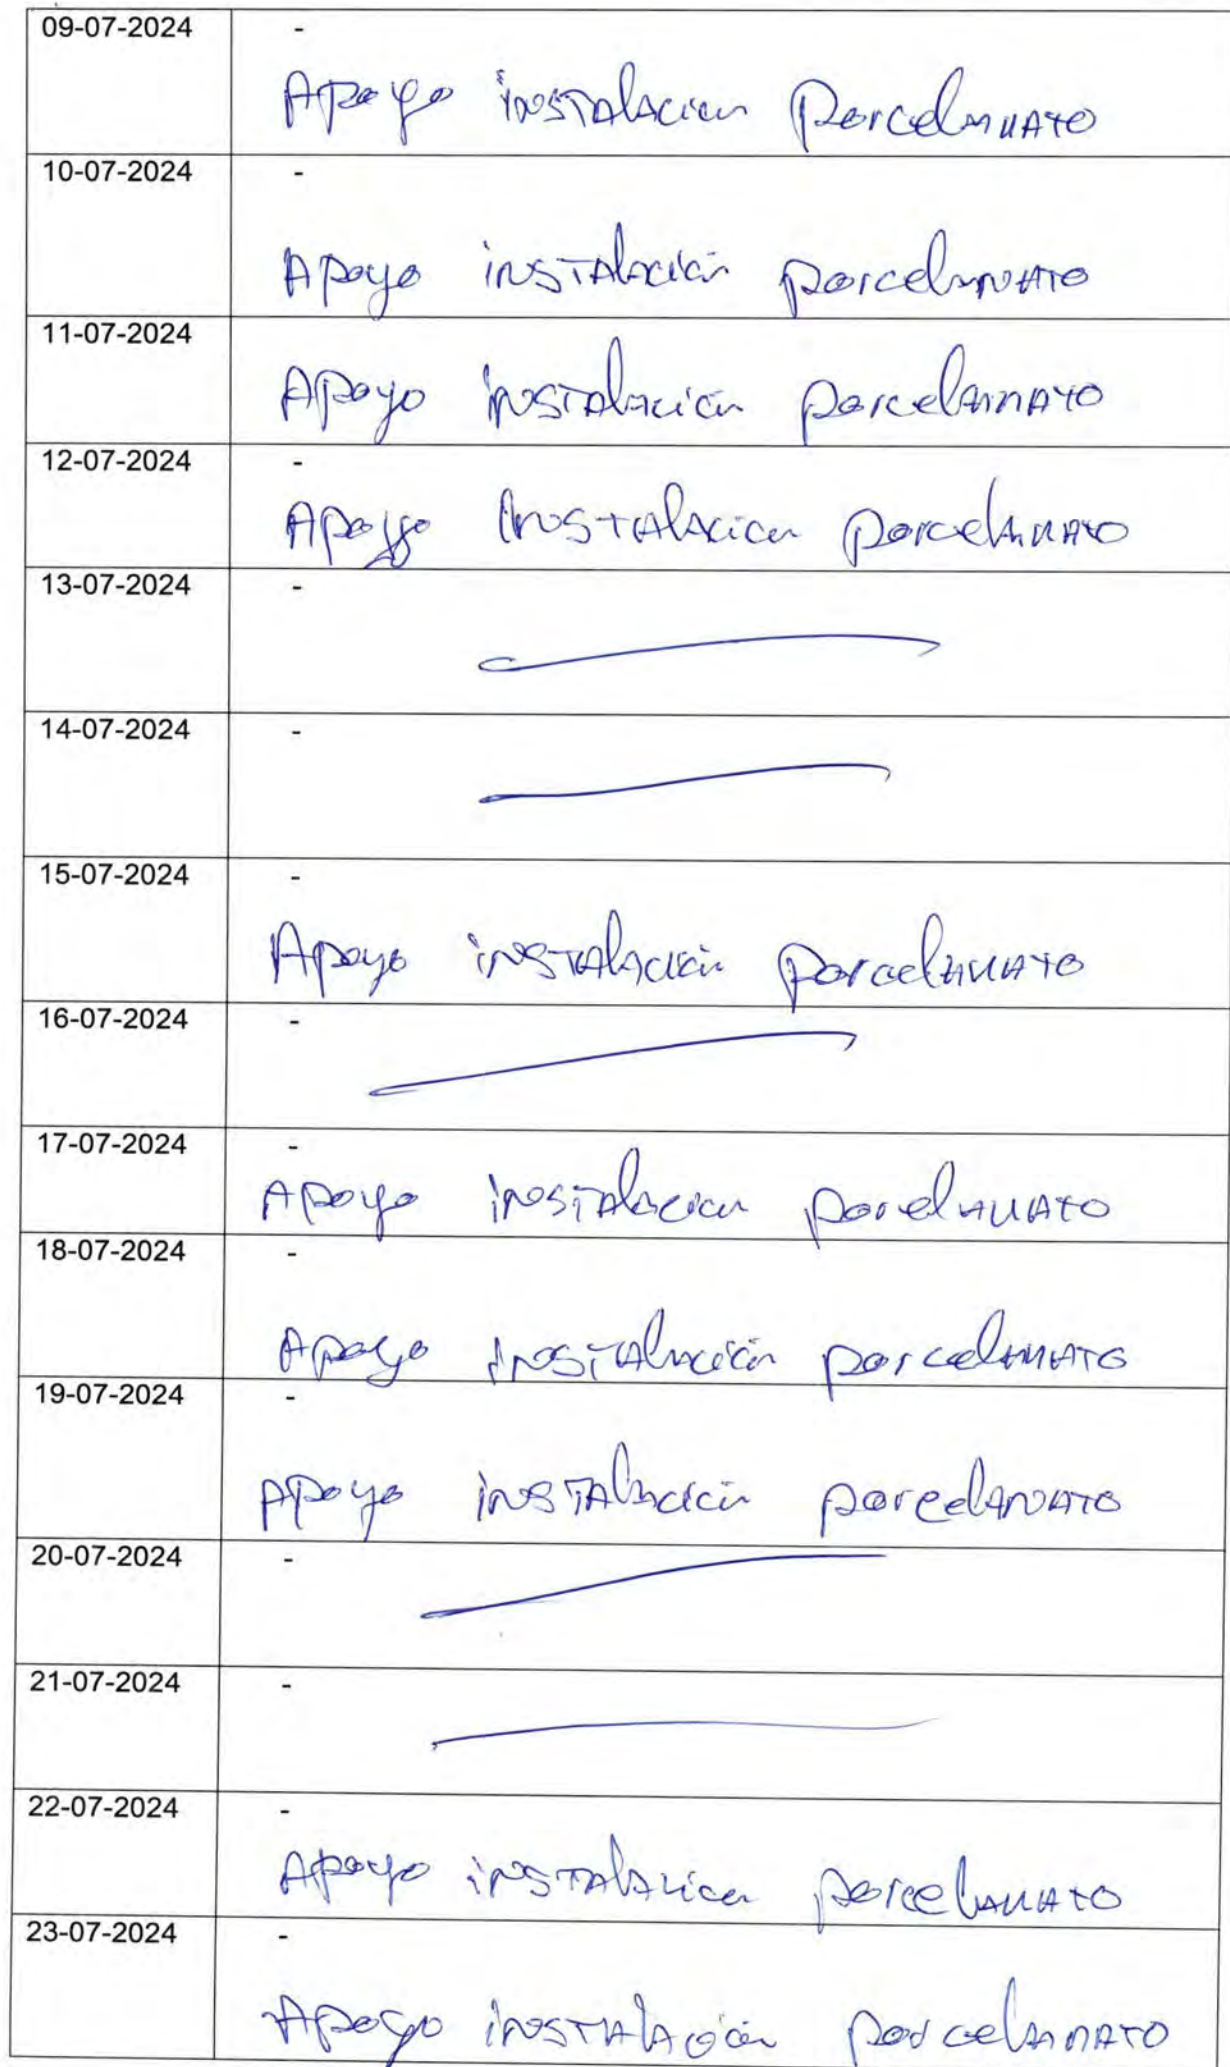 09-07-2024
-
Apoyo instalacion Porcelanato
10-07-2024
-
Apoyo instalación porcelanato
11-07-2024
Apoyo instalación porcelannato
12-07-2024
-
Apoyo Instalacion porcelanato
13-07-2024
-
14-07-2024
-
15-07-2024
-
Apoyo instalación porcelanato
16-07-2024
-
17-07-2024
-
Apoyo instalacion porcelanato
18-07-2024
-
Apoyo instalación porcelanato
19-07-2024
-
Apoyo instalación porcelanato
20-07-2024
-
21-07-2024
-
22-07-2024
-
Apoyo instalacion porcelanato
23-07-2024
-
Apoyo instalación porcelannato